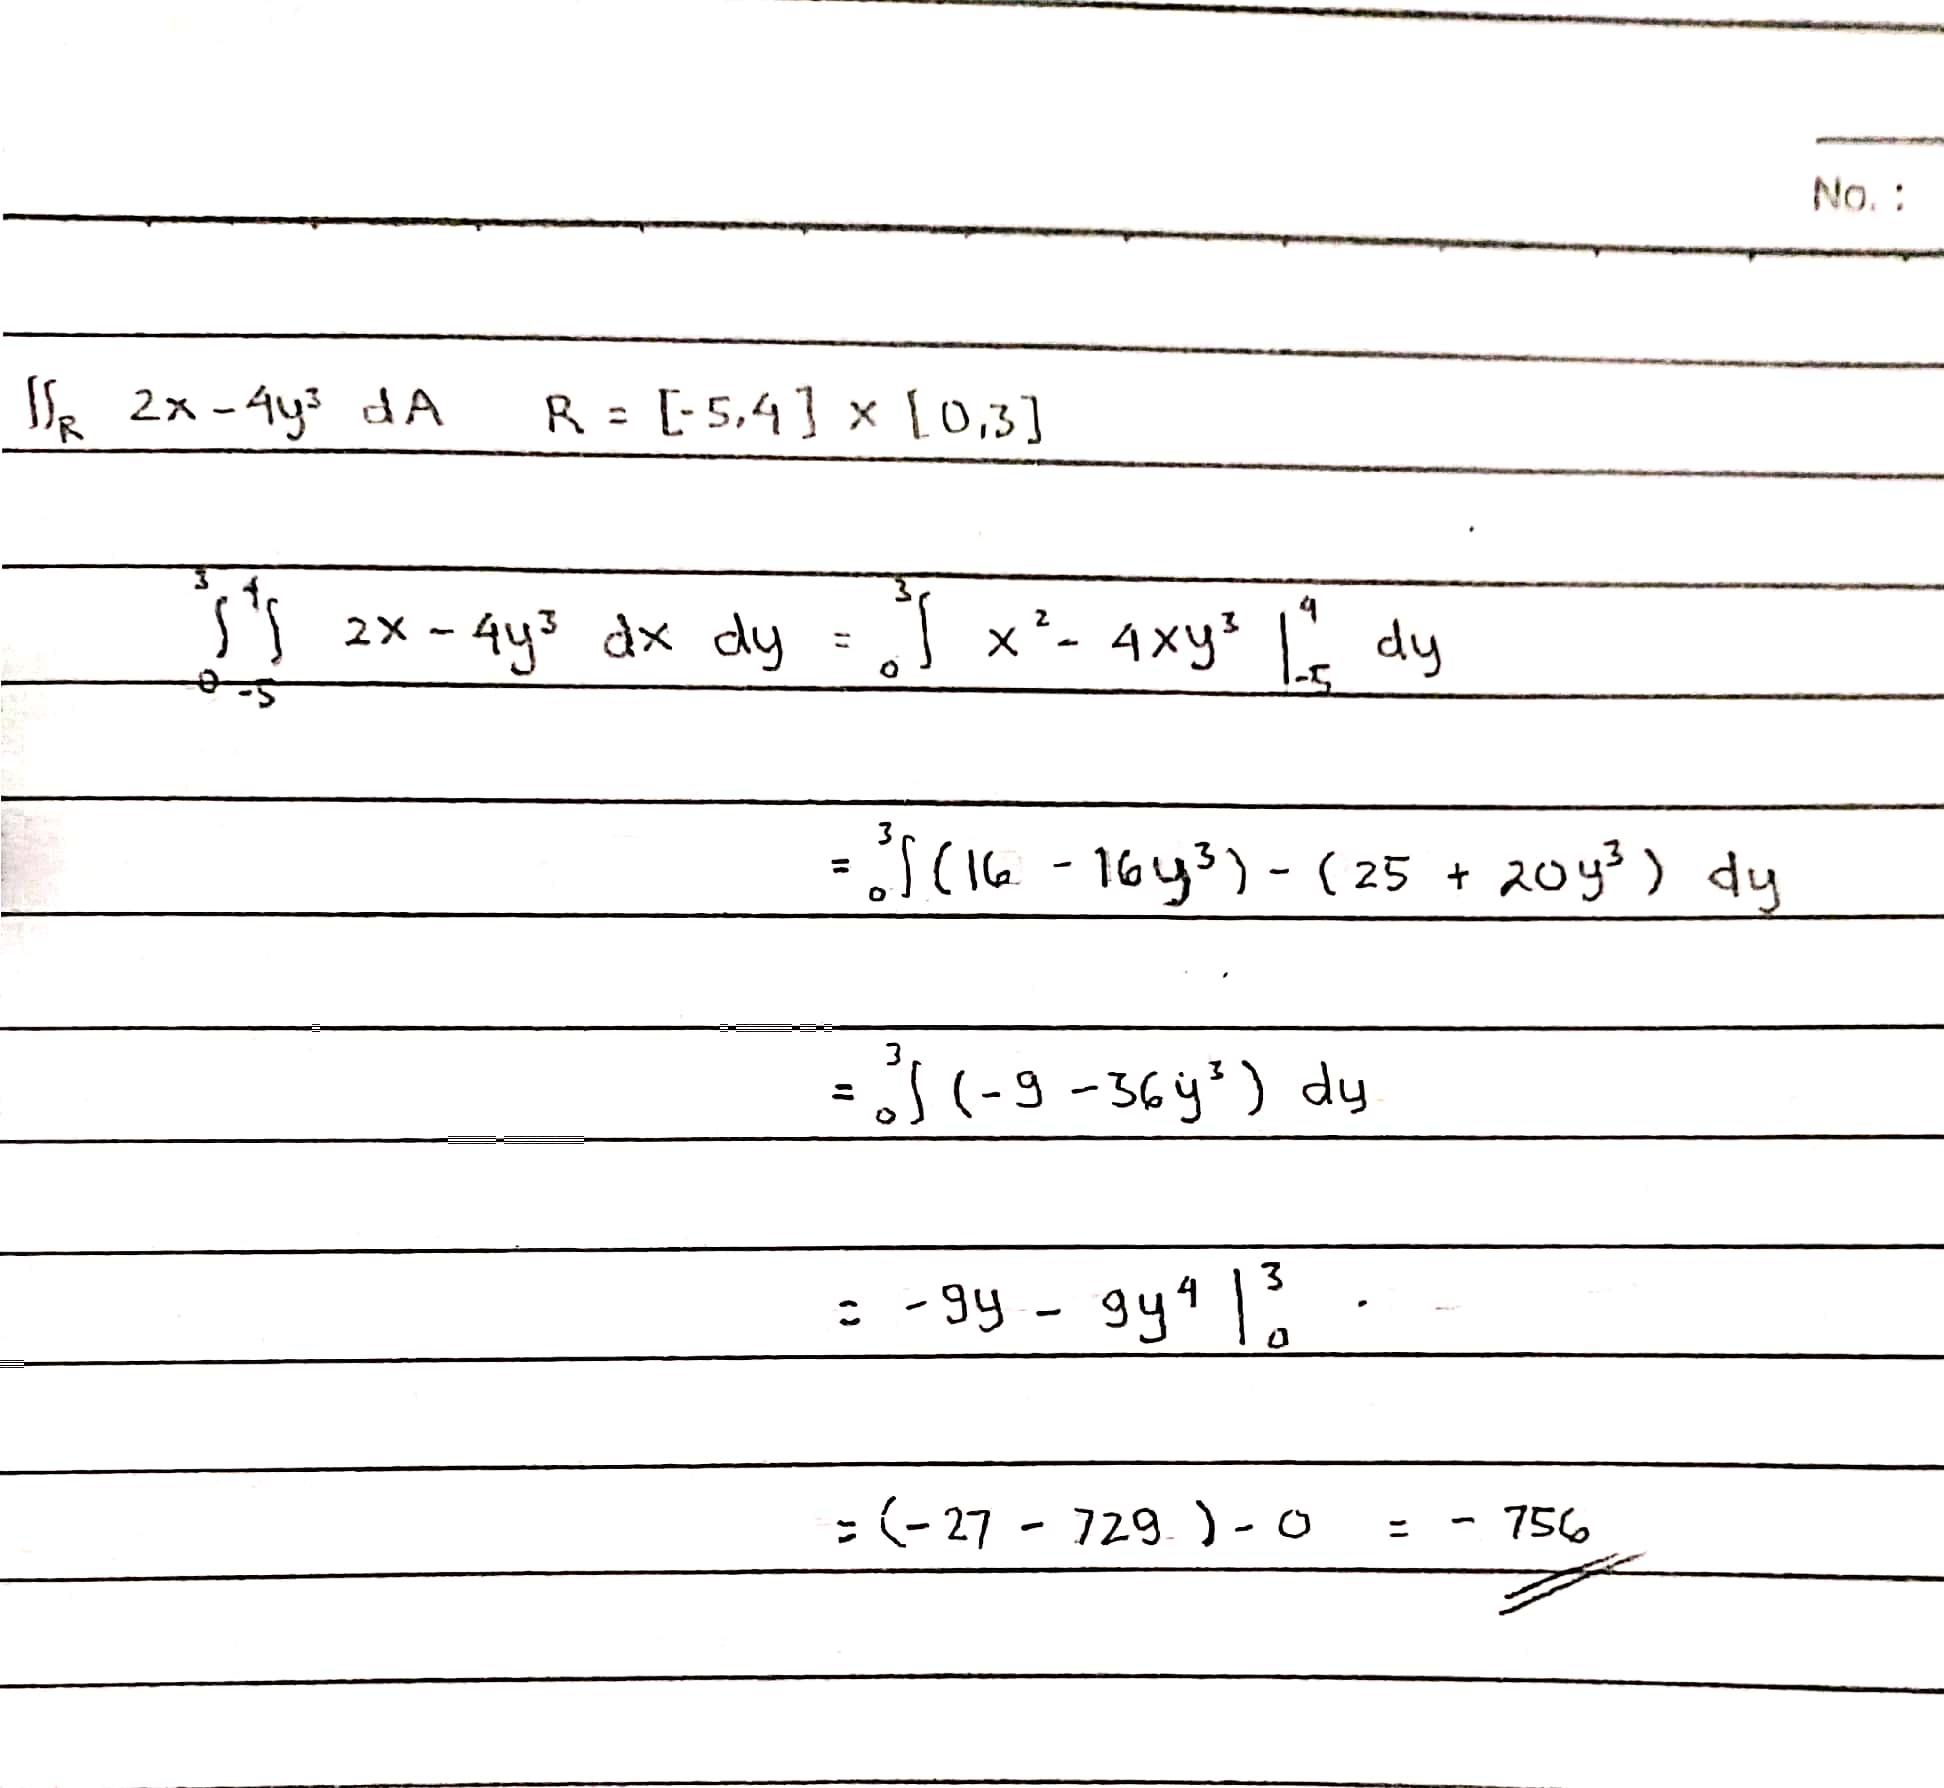 No. :
∬R 2x - 4y³ dA R = [-5,4] x [0,3]
³₀∫ ⁴₋₅∫ 2x - 4y³ dx dy = ³₀∫ x² - 4xy³ |⁴₋₅ dy
= ³₀∫ (16 - 16y³) - (25 + 20y³) dy
= ³₀∫ (-9 - 36y³) dy
= -9y - 9y⁴ |³₀
= (-27 - 729) - 0 = - 756